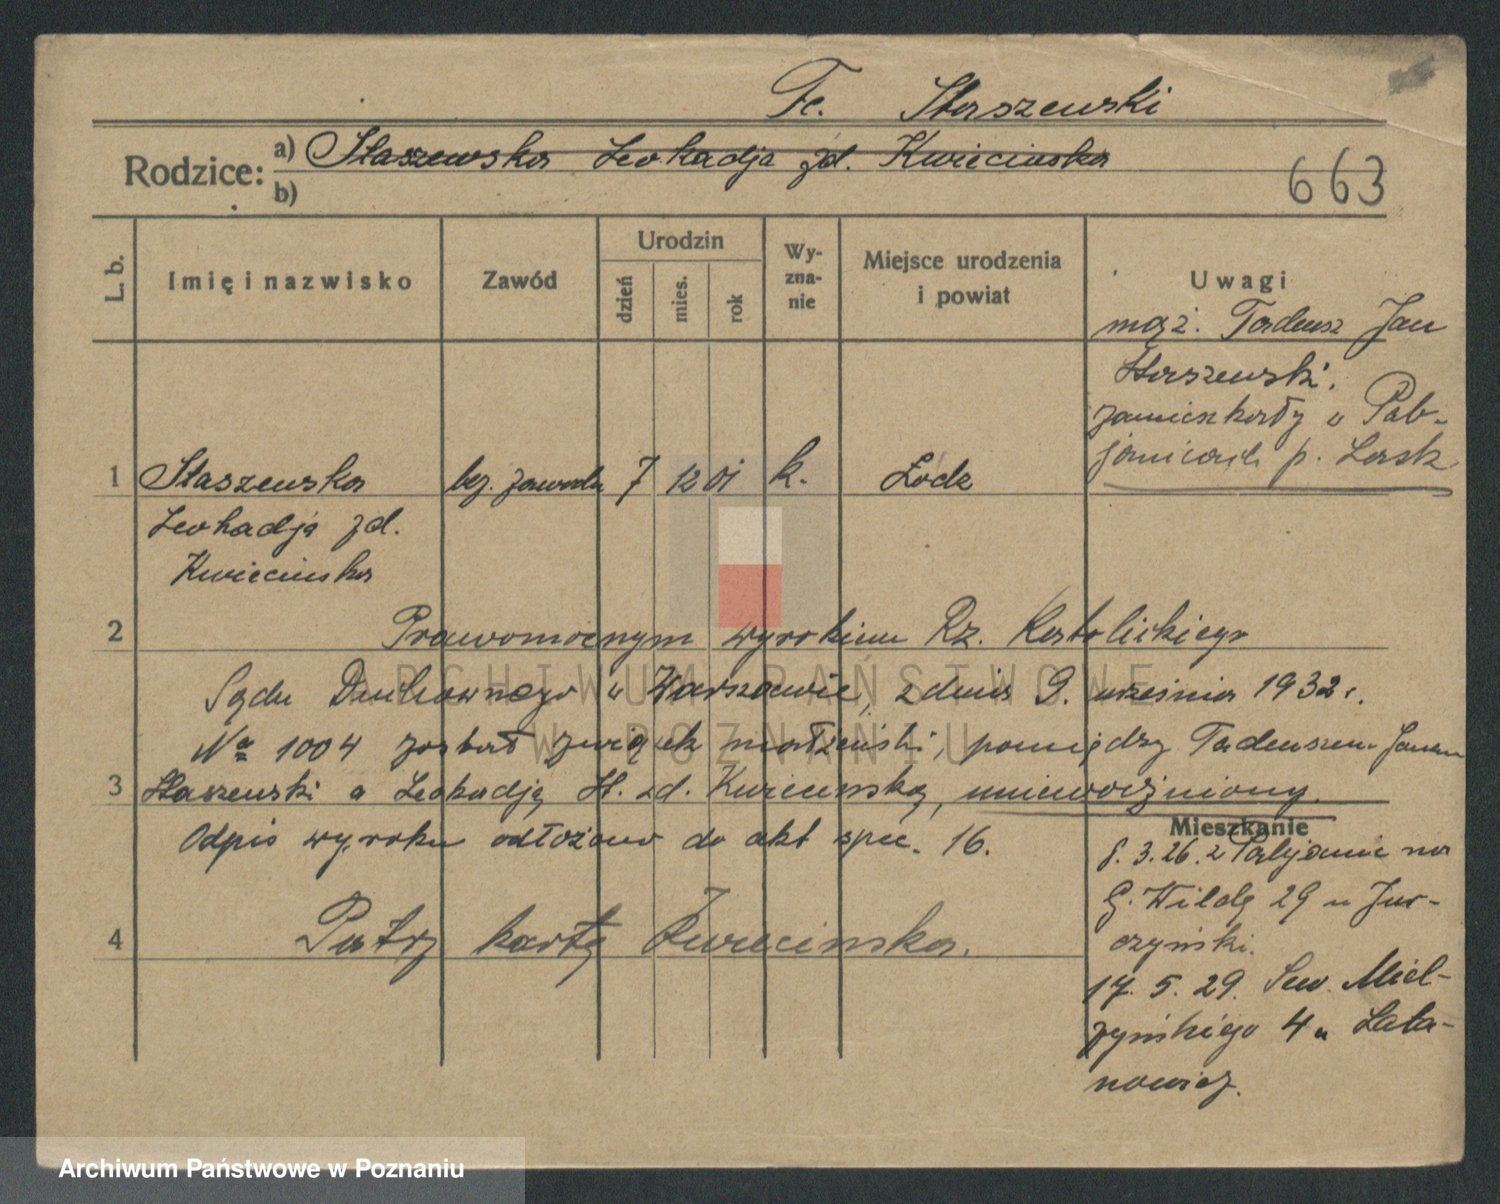 Fc. Staszewski
Rodzice: a) Staszewska Leokadja zd. Kwiecinska
b)
663
L. b.
Imię i nazwisko
Zawód
Urodzin
dzień
mies.
rok
Wy-
zna-
nie
Miejsce urodzenia
i powiat
Uwagi
mąż. Tadeusz Jan
Staszewski.
zamieszkały w Pab-
janicach p. Łask
1 Staszewska bez zawodu 7 12 01 k. Łódz
Leokadja zd.
Kwiecinska
2 Prawomocnym wyrokiem Rz. Katolickiego
Sądu Duchownego w Warszawie, z dnia 9. września 1932 r.
No 1004 został związek małżeński, pomiędzy Tadeuszem Janem
3 Staszewski a Leokadją St. zd. Kwiecinską, unieważniony.
Odpis wyroku odłożono do akt spec. 16.
4 Patrz kartę Kwiecinska.
Mieszkanie
8. 3. 26. z Pabjanic na
G. Wildę 29 u Jur-
czyński.
17. 5. 29. Sew. Miel-
żyńskiego 4 u Lata-
nowicz.
ARCHIWUM PAŃSTWOWE
W POZNANIU
Archiwum Państwowe w Poznaniu